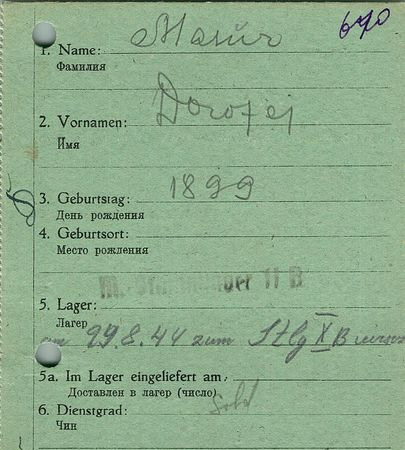 640
1. Name: Masur
Фамилия
2. Vornamen: Dorofej
Имя
3. Geburtstag: 1899
День рождения
4. Geburtsort:
Место рождения
11 B
5. Lager:
Лагер
am 29.8.44 zum Stlg X B
5a. Im Lager eingeliefert am:
Доставлен в лагер (число)
6. Dienstgrad: Sold
Чин